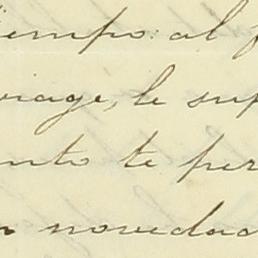 iempo al
viage, le sup
nto te per
novedad